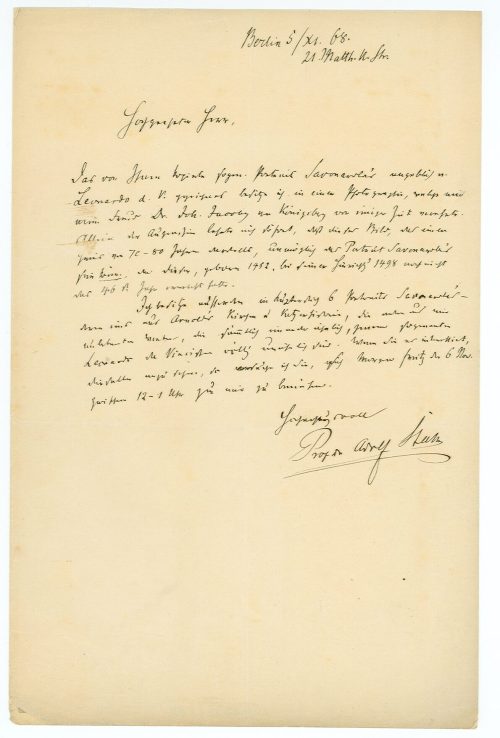 Berlin 5/XI. 68.
21 Matth. K. Str.
Hochgeehrter Herr,
Das von Ihnen sogen. Portrait Savonarola's angeblich v.
Leonardo d. V. besitze ich in einer Photographie, welche mir
mein Freund Dr. Joh. Jacoby aus Königsberg vor einiger Zeit
Allein der Augenschein lehrte mich sofort, daß dieses Bild, das einen
Greis von 70-80 Jahren darstellt, unmöglich das Porträt Savonarola's
sein könne, da dieser, geboren 1452, bei seiner Hinricht. 1498 noch nicht
das 46 t. Jahr erreicht hatte.
Ich besitze außerdem 6 Portraits Savonarola's -
eins aus Arnold's Kirchen u. Ketzerhistorie, die
die sämtlich einander ähnlich, jenem sogenannten
Leonardo da Vincischen völlig unähnlich sind. Wenn Sie es interessirt,
dieselben anzusehen, so ich Sie, mich Morgen Freitag den 6 Nov.
zwischen 12-1 Uhr zu mir zu bemühen.
Hochachtungsvoll
Prof. Dr. Adolf Stahr